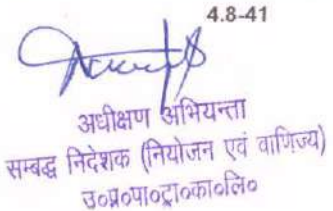 4.8-41
अधीक्षण अभियन्ता
सम्बद्ध निदेशक (नियोजन एवं वाणिज्य)
उ०प्र०पा०ट्रा०का०लि०